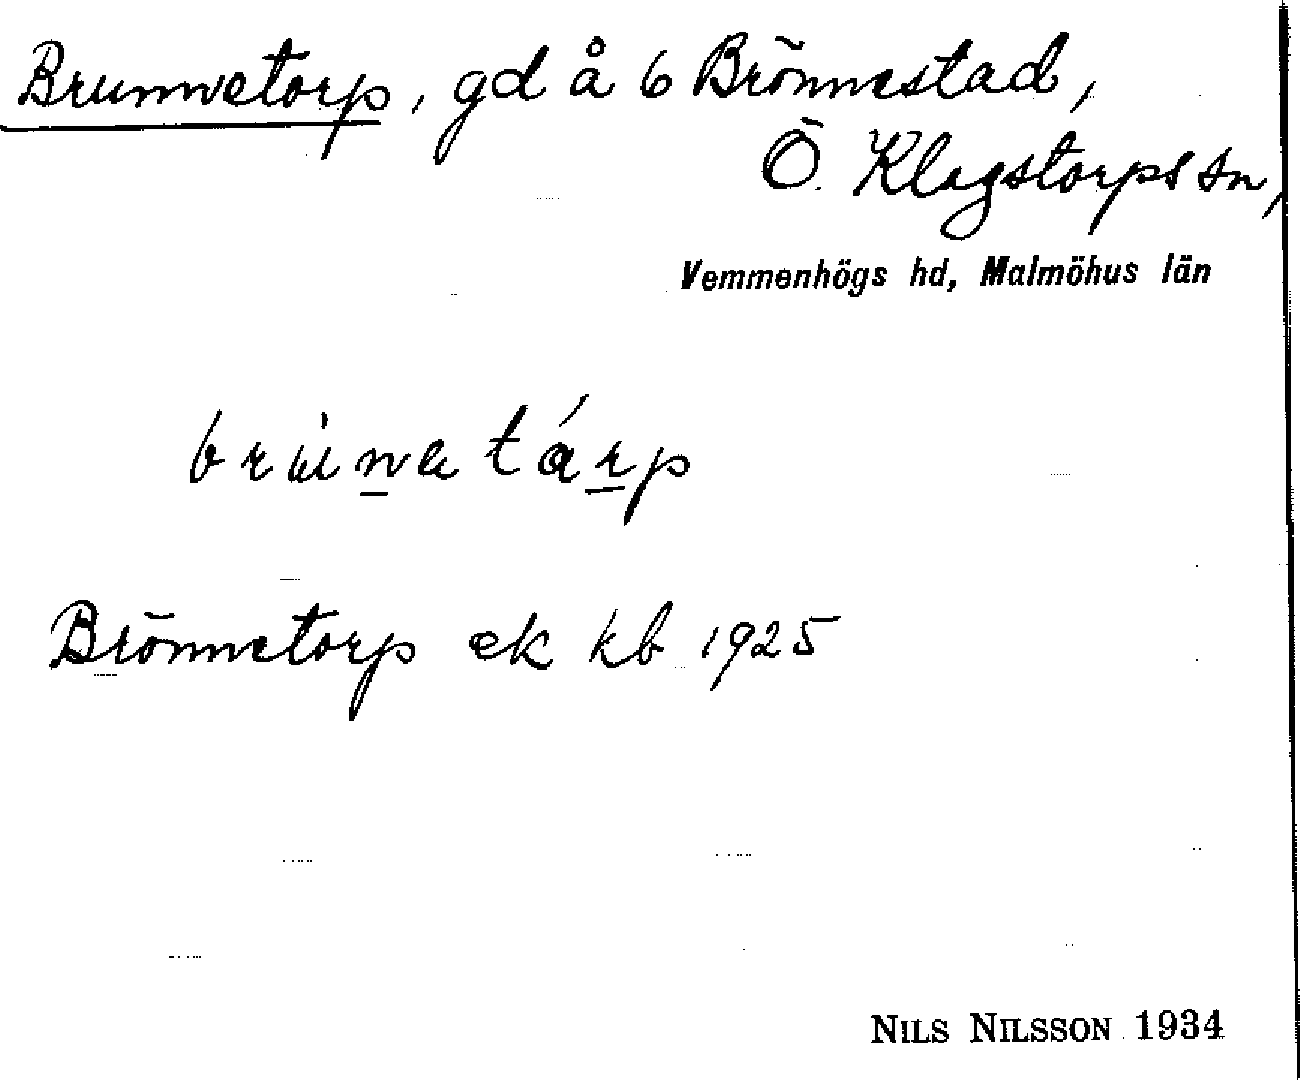 Brunnetorp, gd å 6 Brönnestad,
Ö. Klagstorps sn,
Vemmenhögs hd, Malmöhus län
brùna tárp
Brönnetorp ek kb 1925
NILS NILSSON 1934